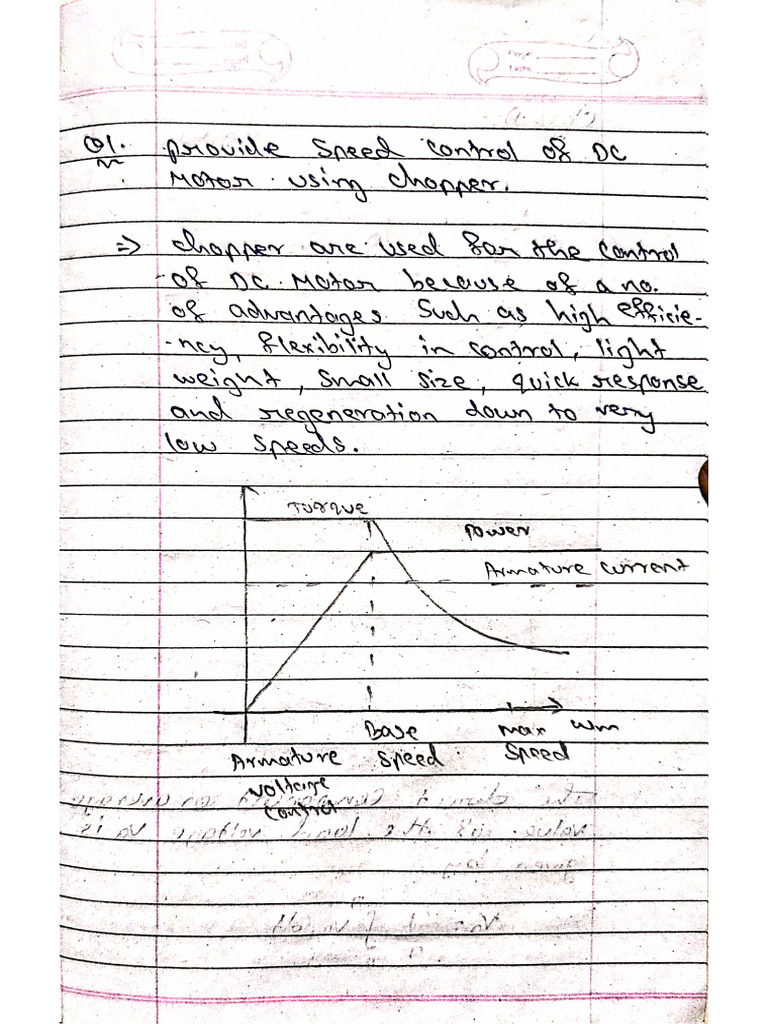 Q1. provide speed control of DC
Motor using chopper.
⇒ chopper are used for the control
of DC Motor because of a no.
of advantages such as high efficie-
-ncy, flexibility in control, light
weight, small size, quick response
and regeneration down to very
low speeds.
Torque
Power
Armature current
Base Speed
max Speed
wm
Armature voltage control